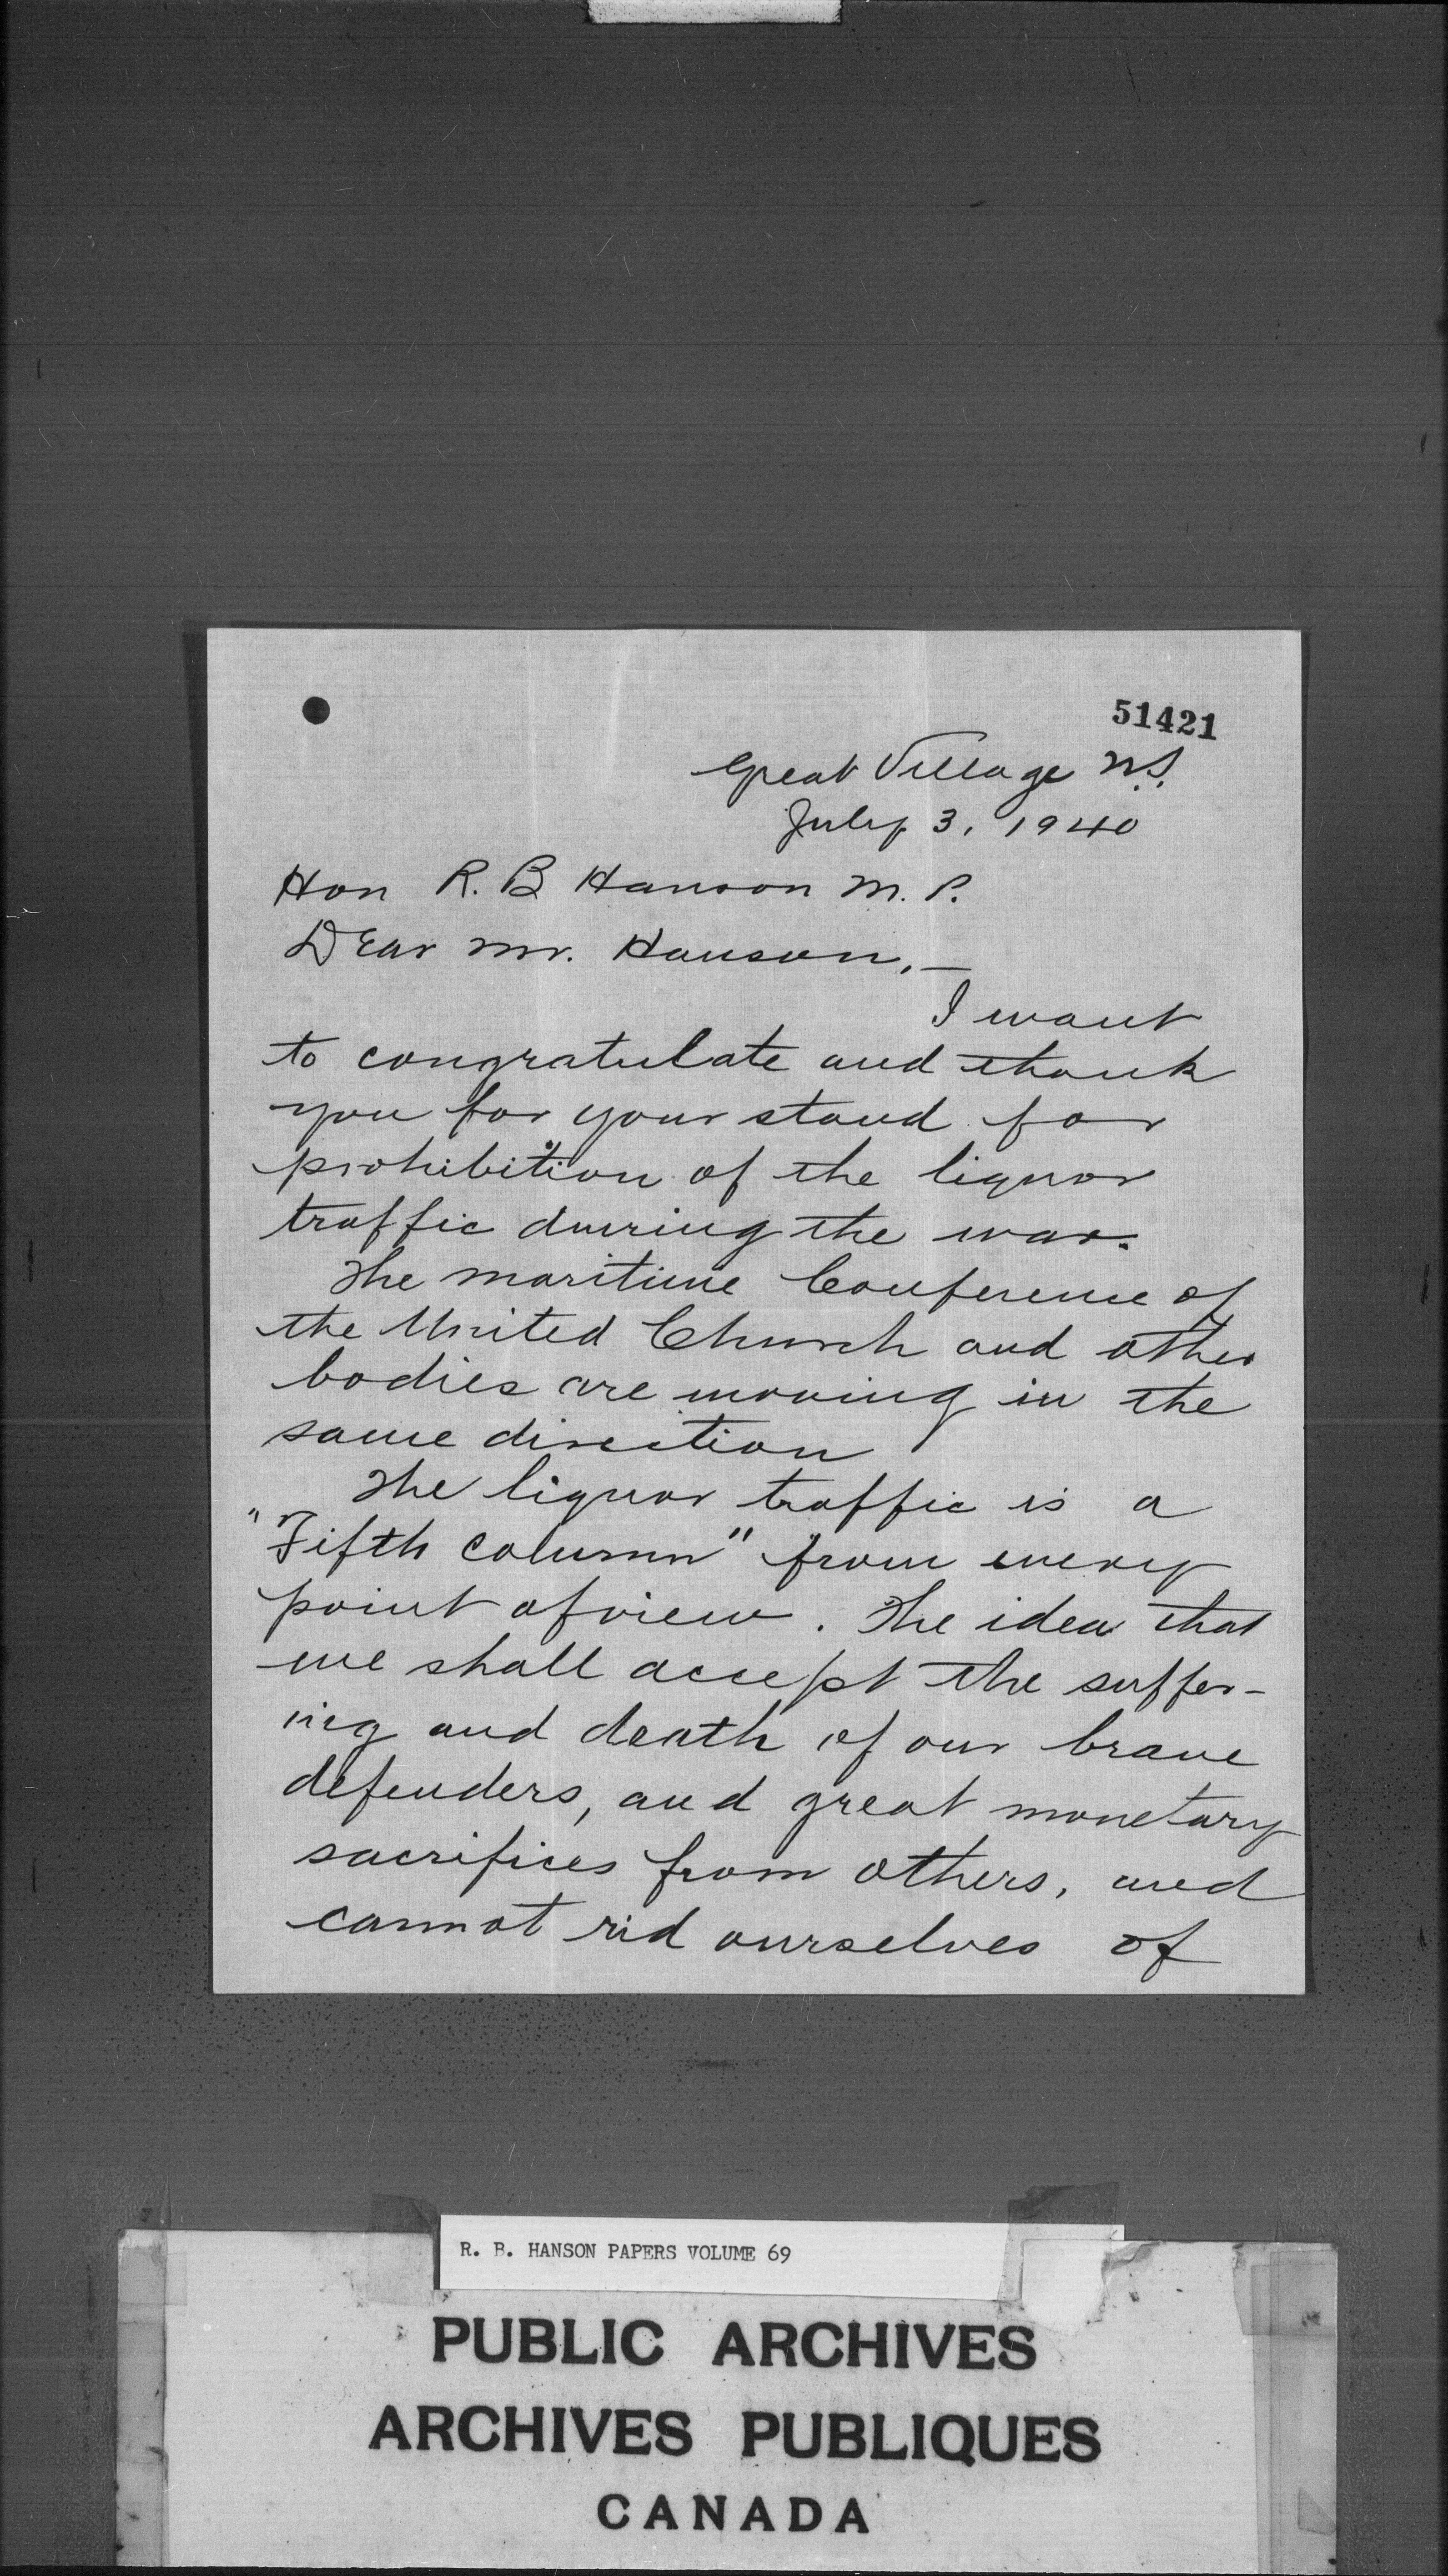 51421
Great Village N.S.
July 3, 1940
Hon R. B Hanson M. P.
Dear Mr. Hanson,—
I want
to congratulate and thank
you for your stand for
prohibition of the liquor
traffic during the war.
The Maritime Conference of
the United Church and other
bodies are moving in the
same direction
The liquor traffic is a
"Fifth Column" from every
point of view. The idea that
we shall accept the suffer-
ing and death of our brave
defenders, and great monetary
sacrifices from others, and
cannot rid ourselves of
R. B. HANSON PAPERS VOLUME 69
PUBLIC ARCHIVES
ARCHIVES PUBLIQUES
CANADA